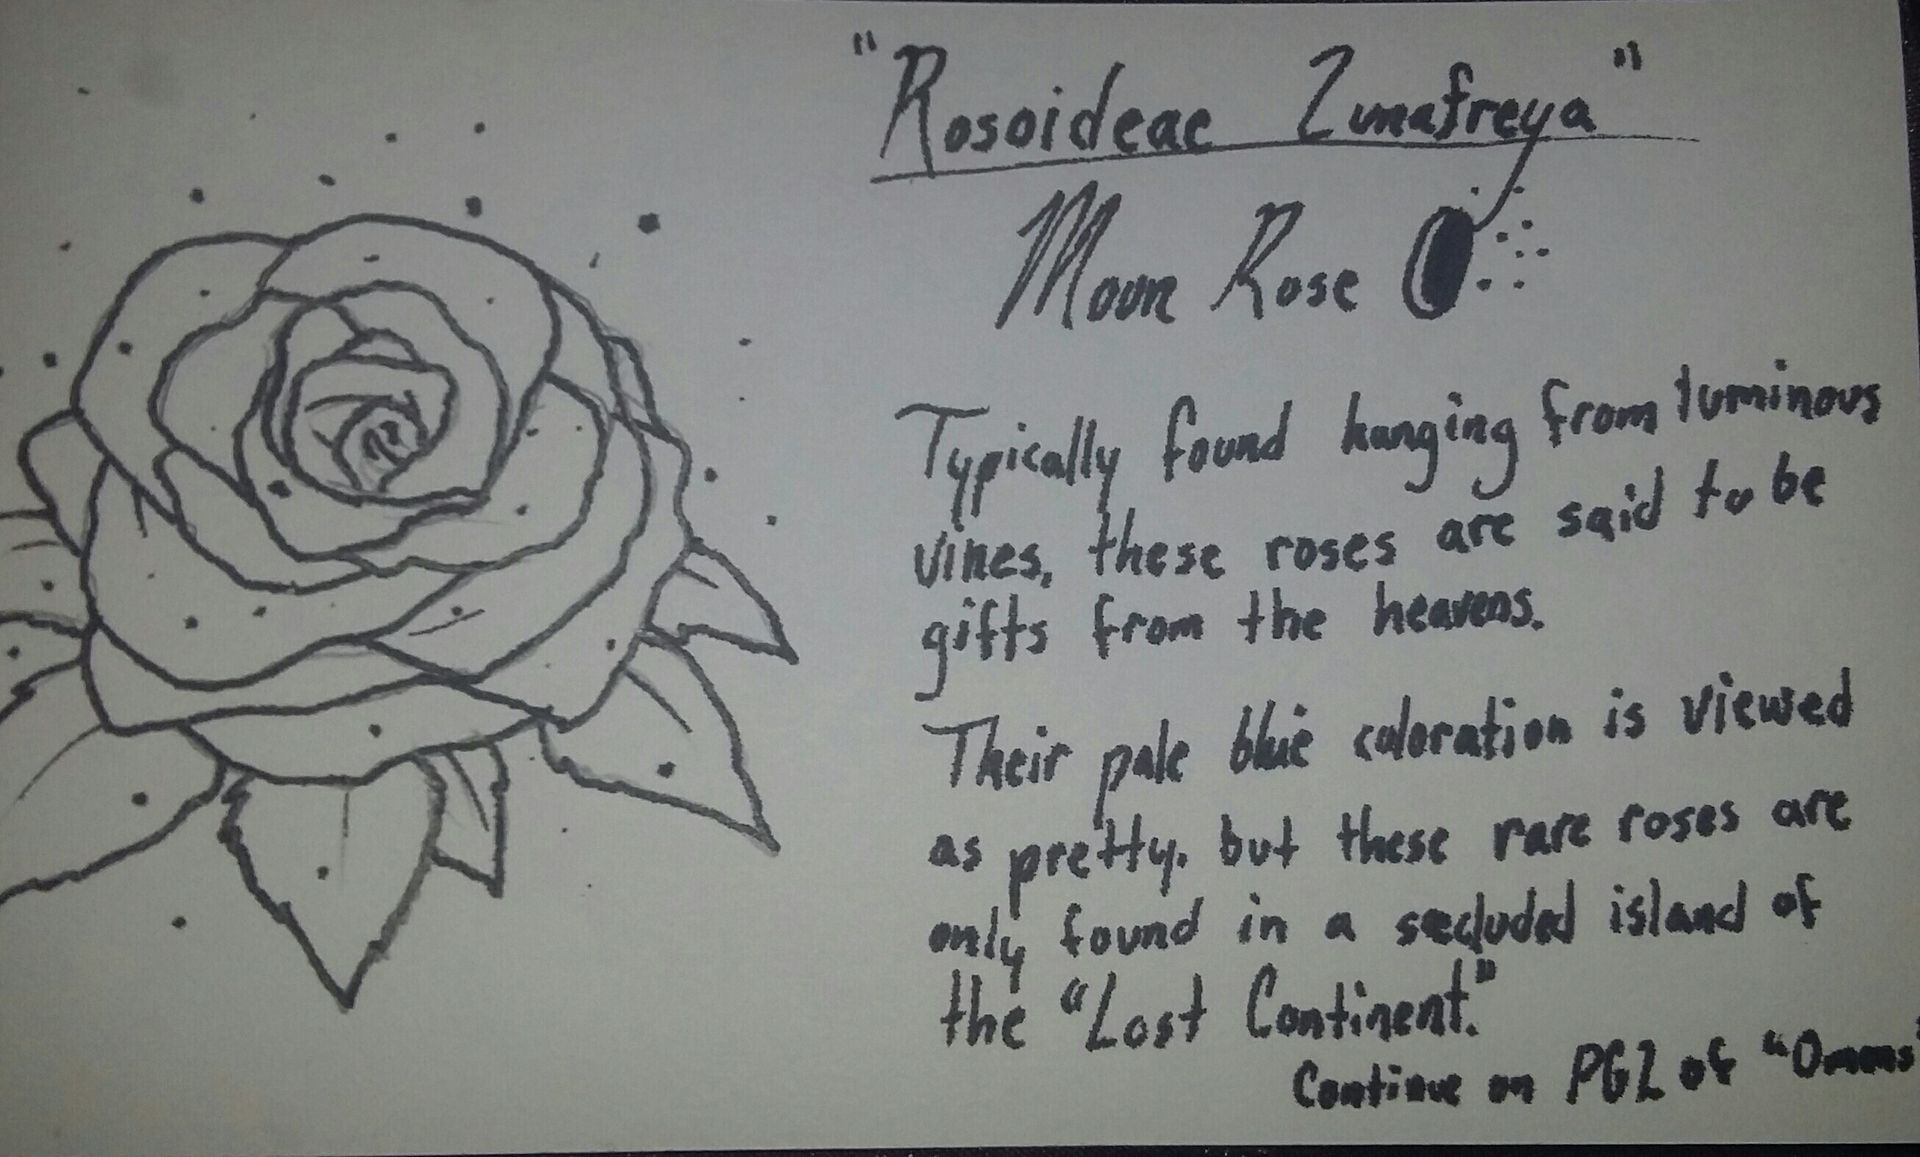 "Rosoideae Lunafreya"
Moon Rose
Typically found hanging from luminous
vines, these roses are said to be
gifts from the heavens.
Their pale blue coloration is viewed
as pretty, but these rare roses are
only found in a secluded island of
the "Lost Continent."
Continue on PG2 of "Omens"